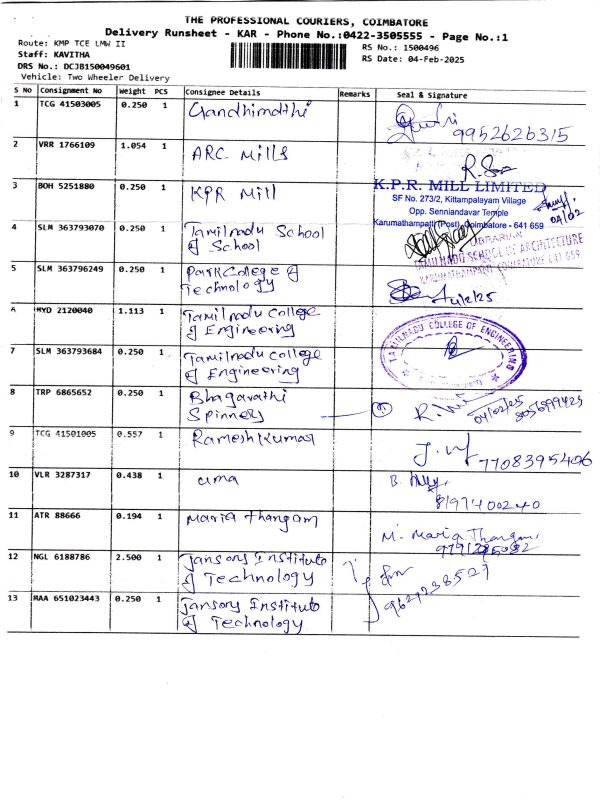 THE PROFESSIONAL COURIERS, COIMBATORE
Delivery Runsheet - KAR - Phone No.:0422-3505555 - Page No.:1
Route: KMP TCE LMW II
RS No.: 1500496
Staff: KAVITHA
RS Date: 04-Feb-2025
DRS No.: DCJB150049601
Vehicle: Two Wheeler Delivery
S No Consignment No Weight PCS Consignee Details Remarks Seal & Signature
1 TCG 41503005 0.250 1 Gandhimathi
9952626315
2 VRR 1766109 1.054 1 ARC Mills
3 BOH 5251880 0.250 1 KPR Mill
K.P.R. MILL LIMITED
SF No. 273/2, Kittampalayam Village
Opp. Senniandavar Temple
Karumathampatti (Post), Coimbatore - 641 659
04/02
4 SLM 363793070 0.250 1 Tamilnadu School
of School
TAMILNADU SCHOOL OF ARCHITECTURE
5 SLM 363796249 0.250 1 Park College of
Technology
6 MYD 2120040 1.113 1 Tamilnadu College
of Engineering
7 SLM 363793684 0.250 1 Tamilnadu College
of Engineering
TAMILNADU COLLEGE OF ENGINEERING
8 TRP 6865652 0.250 1 Bhagavathi
Spinners
04/02/25
9 TCG 41501005 0.557 1 Rameshkumar
7708395406
10 VLR 3287317 0.438 1 uma
11 ATR 88666 0.194 1 Maria Thangam
M. Maria Thangam
12 NGL 6188786 2.500 1 Jansons Institute
of Technology
9629238527
13 RAA 651023443 0.250 1 Jansons Institute
of Technology